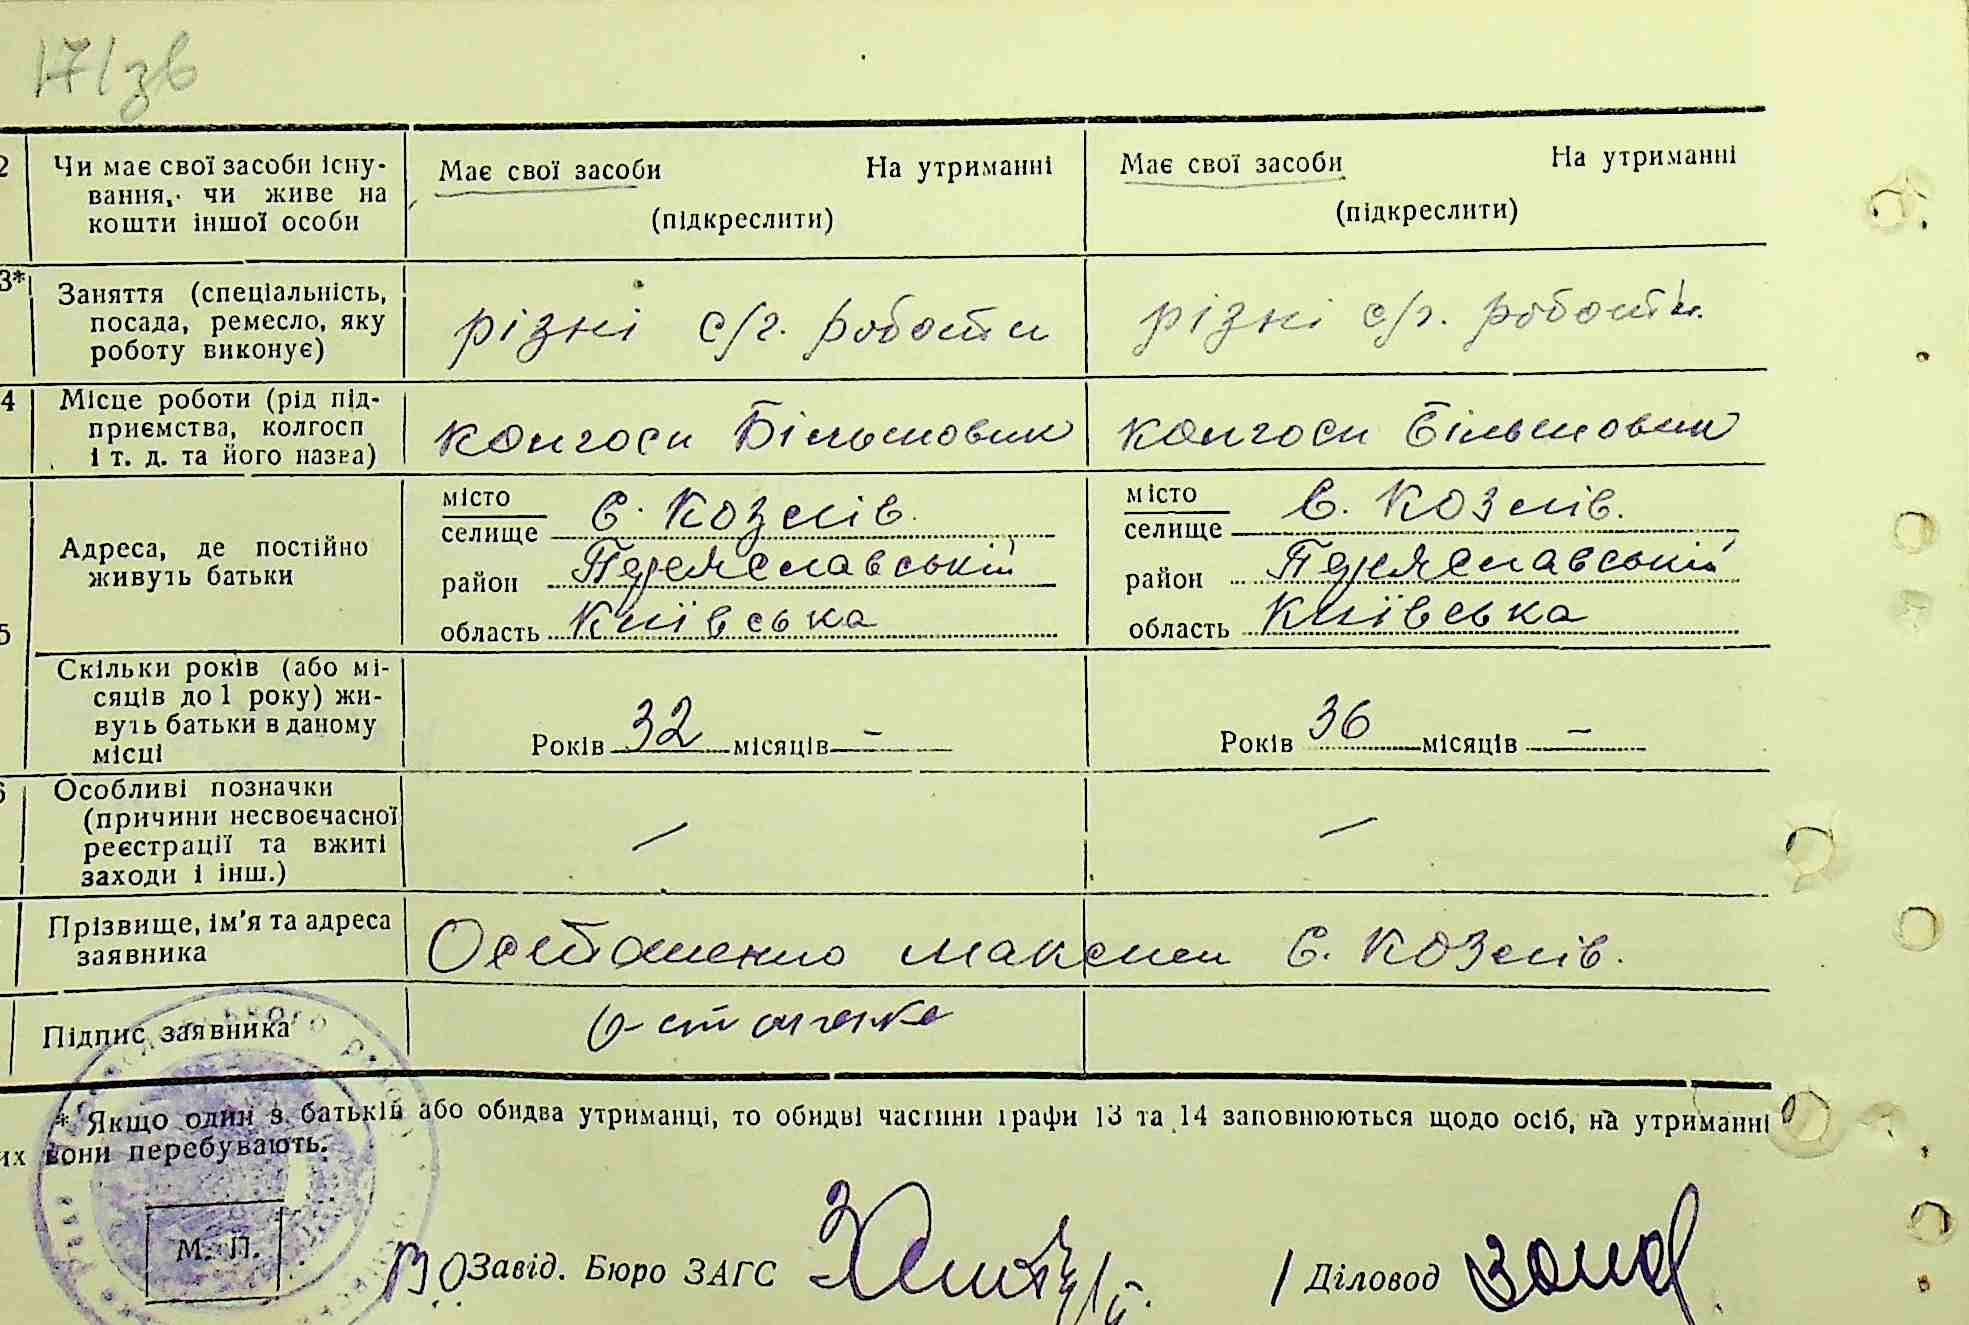 171зв
2 Чи має свої засоби існу-
вання, чи живе на
кошти іншої особи
Має свої засоби На утриманні
(підкреслити)
Має свої засоби На утриманні
(підкреслити)
3* Заняття (спеціальність,
посада, ремесло, яку
роботу виконує)
різні с/г. роботи
різні с/г. роботи.
4 Місце роботи (рід під-
приємства, колгосп
і т. д. та його назва)
колгосп Більшовик
колгосп Більшовик
5 Адреса, де постійно
живуть батьки
місто
селище с. Козлів.
район Переяславський
область Київська
місто
селище с. Козлів.
район Переяславський
область Київська
Скільки років (або мі-
сяців до 1 року) жи-
вуть батьки в даному
місці
Років 32 місяців —
Років 36 місяців —
6 Особливі позначки
(причини несвоєчасної
реєстрації та вжиті
заходи і інш.)
—
—
Прізвище, ім'я та адреса
заявника
Осташенко Максим с. Козлів.
Підпис заявника
* Якщо один з батьків або обидва утриманці, то обидві частини графи 13 та 14 заповнюються щодо осіб, на утриманні
их вони перебувають.
М. П.
ВО Завід. Бюро ЗАГС
Діловод